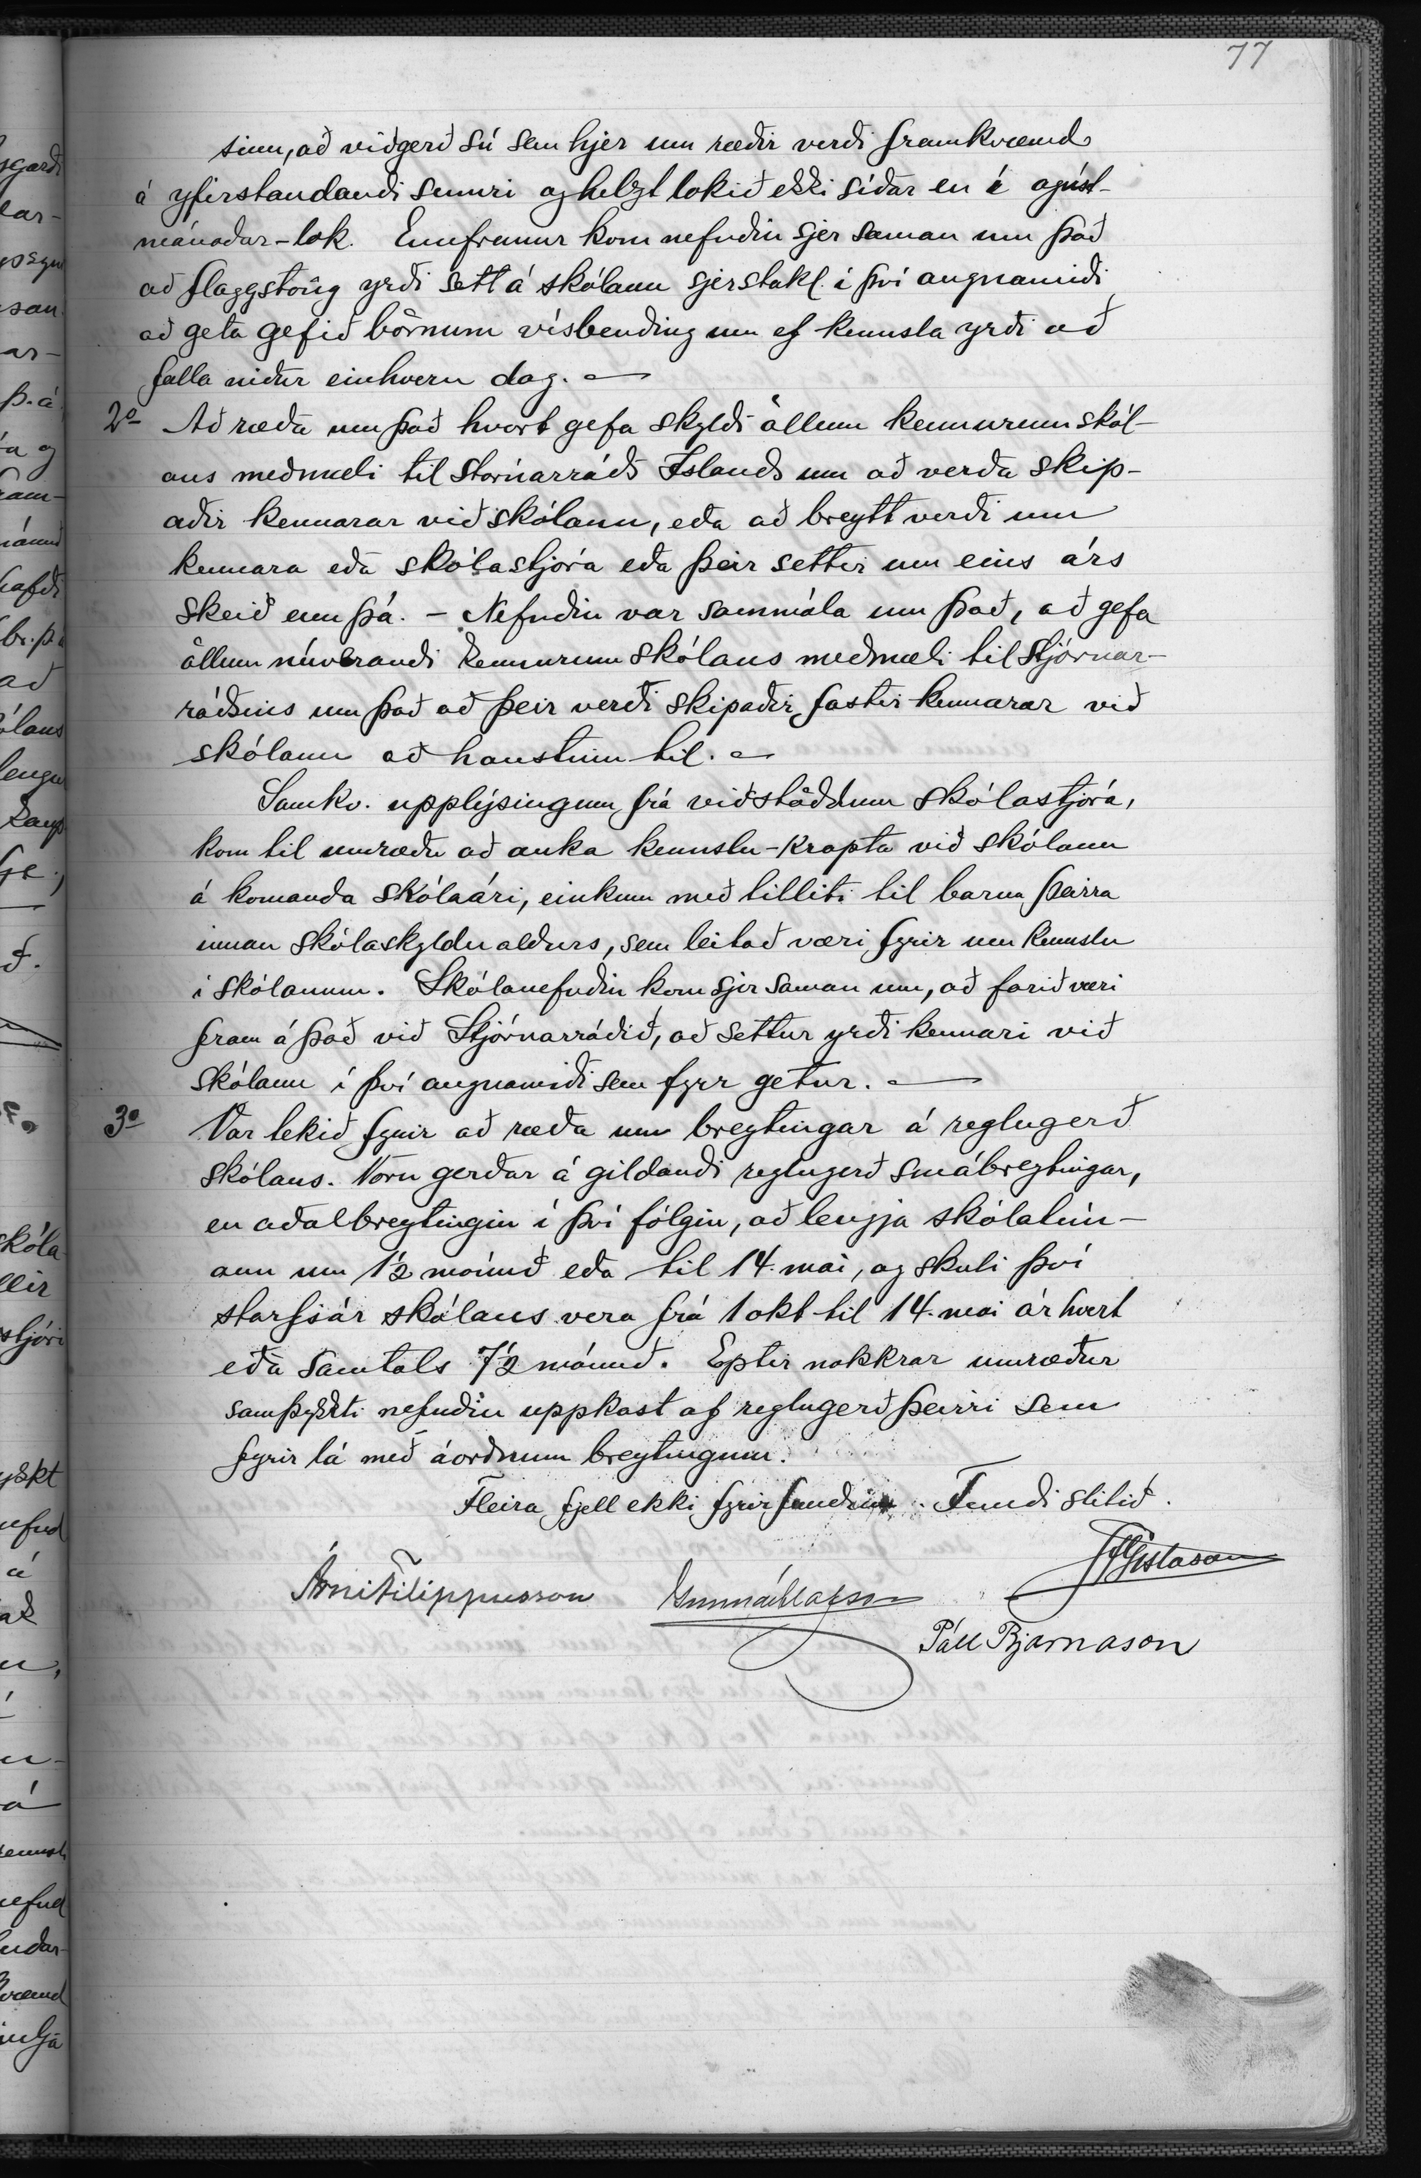 77
sinn, að viðgerð sú sem hjer um ræðir verði framkvæmd
á yfirstandandi sumri og helzt lokið ekki síðar en í ágúst-
mánaðar-lok. Ennfremur kom nefndin sjer saman um það
að flaggstöng yrði sett á skólann sjerstakl. í því augnamiði
að geta gefið börnum vísbending um ef kennsla yrði að
falla niður einhvern dag. —
2º Að ræða um það hvort gefa skyldi öllum kennurum skól-
ans meðmæli til Stórnarráðs Íslands um að verða skip-
aðir kennarar við skólann, eða að breytt verði um
kennara eða skólastjóra eða þeir settir um eins árs
skeið enn þá. - Nefndin var sammála um það, að gefa
öllum núverandi kennurum skólans meðmæli til Stjórnar-
ráðsins um það að þeir verði skipaðir fastir kennarar við
skólann að haustinu til. —
Samkv. upplýsingum frá viðstöddum skólastjóra,
kom til umræðu að auka kennslu-krapta við skólann
á komanda skólaári, einkum með tilliti til barna þeirra
innan skólaskyldu aldurs, sem leitað væri fyrir um kennslu
í skólanum. Skólanefndin kom sjer saman um, að farið væri
fram á það við Stjórnarráðið, að settur yrði kennari við
skólann í því augnamiði sem fyrr getur. —
3º Var tekið fyrir að ræða um breytingar á reglugerð
skólans. Voru gerðar á gildandi reglugerð smábreytingar,
en aðalbreytingin í því fólgin, að lengja skólatím-
ann um 1/2 mánuð eða til 14. maí, og skuli því
starfsár skólans vera frá 1 okt til 14. maí ár hvert
eða samtals 7 1/2 mánuð. Eptir nokkrar umræður
samþykkti nefndin uppkast af reglugerð þeirri sem
fyrir lá með áorðnum breytingum.
Fleira fjell ekki fyrir fundinn. Fundi slitið.
Árni Filippusson Gunnar Ólafsson Gíslason
Páll Bjarnason